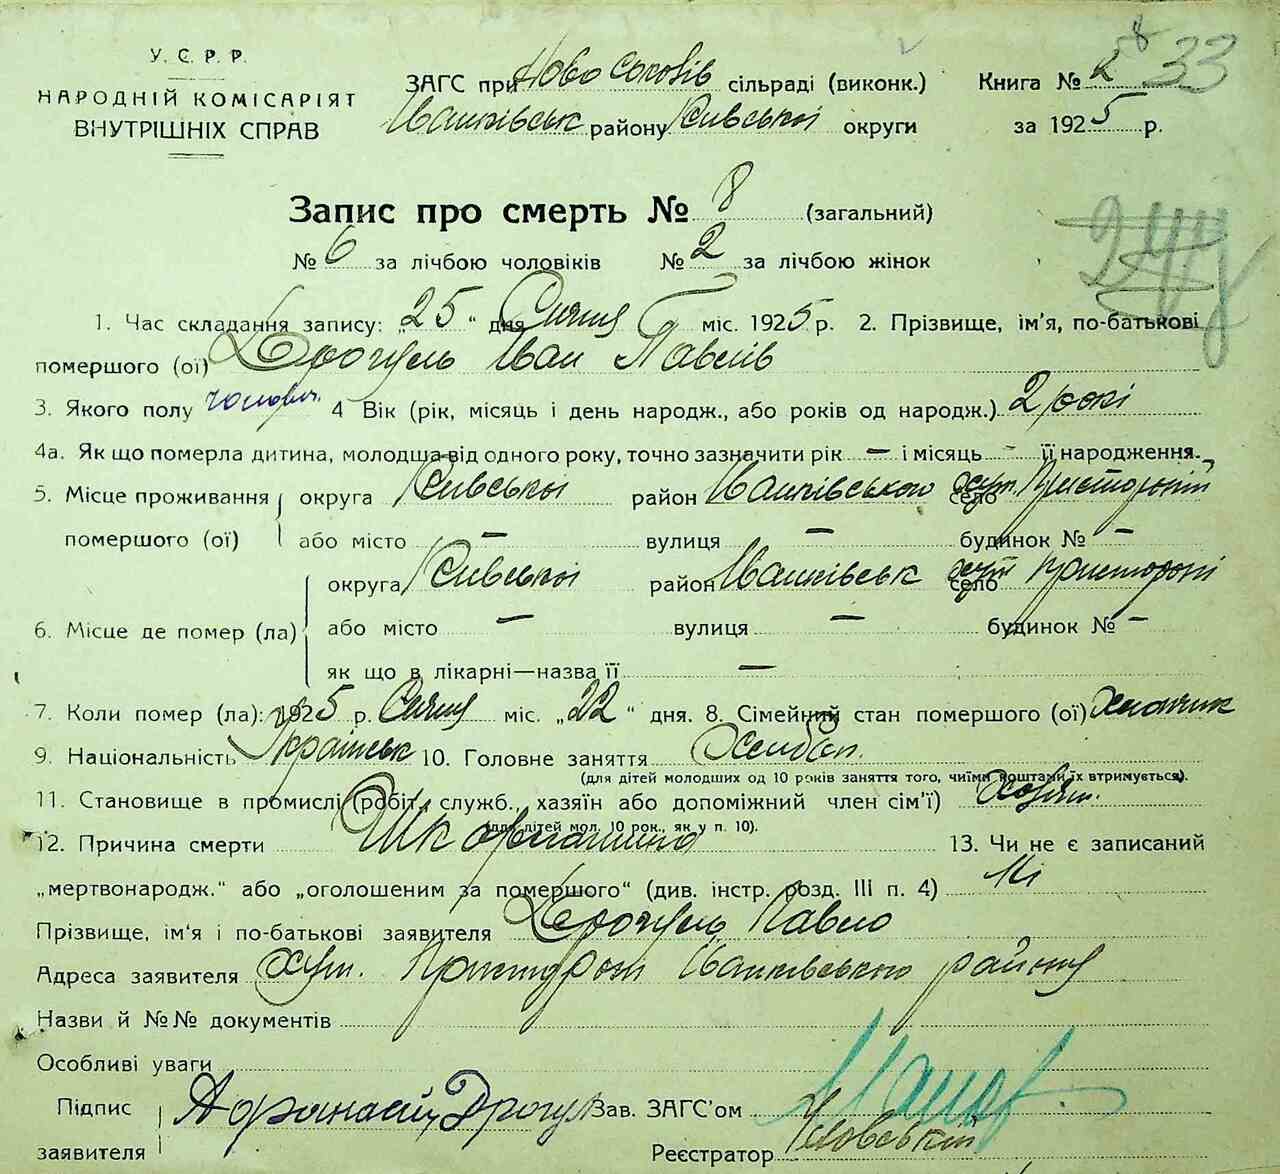 У. С. Р. Р.
НАРОДНІЙ КОМІСАРІЯТ
ВНУТРІШНІХ СПРАВ
ЗАГС при Ново Соколів сільраді (виконк.)
Іванківськ району Київської округи
Книга №
33
за 1925 р.
Запис про смерть № 8 (загальний)
№ 6 за лічбою чоловіків № 2 за лічбою жінок
1. Час складання запису: „25“ дня Січня міс. 1925 р. 2. Прізвище, ім'я, по-батькові
помершого (ої) Дрогуль Іван Павлів
3. Якого полу чоловіч. 4 Вік (рік, місяць і день народж., або років од народж.) 2 роки
4а. Як що померла дитина, молодша від одного року, точно зазначити рік — і місяць - її народження.
5. Місце проживання округа Київської район Іванківського село хут.
помершого (ої) або місто — вулиця — будинок № —
округа Київської район Іванківськ село хут
6. Місце де помер (ла) або місто — вулиця — будинок № —
як що в лікарні—назва її —
7. Коли помер (ла): 1925 р. Січня міс. „22“ дня. 8. Сімейний стан помершого (ої) хлопчик
9. Національність Українськ 10. Головне заняття Хлібороб.
(для дітей молодших од 10 років заняття того, чиїми коштами їх втримується).
11. Становище в промислі (робіт., служб., хазяїн або допоміжний член сім'ї)
(для дітей мол. 10 рок., як у п. 10).
12. Причина смерти Шкорлатина 13. Чи не є записаний
„мертвонародж.“ або „оголошеним за помершого“ (див. інстр. розд. III п. 4) Ні
Прізвище, ім'я і по-батькові заявителя Дрогуль Павло
Адреса заявителя хут. Іванківського району
Назви й №№ документів
Особливі уваги
Підпис Афанасій Дрогул Зав. ЗАГС'ом
заявителя Реєстратор